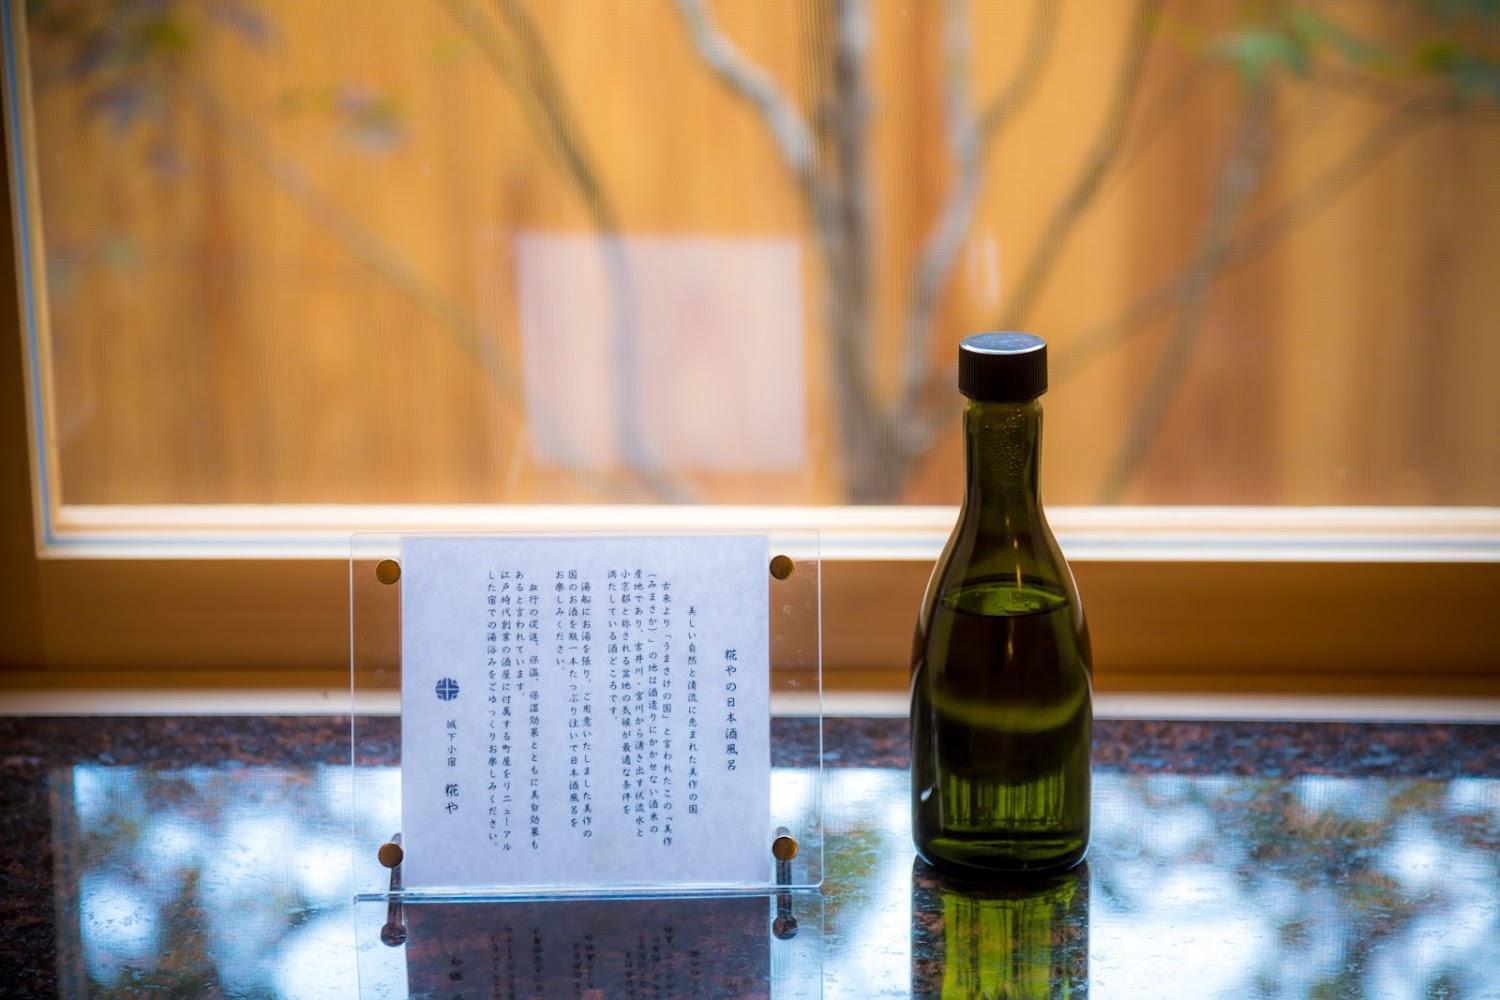 糀やの日本酒風呂
美しい自然と清流に恵まれた美作の国
古来より「うまさけの国」と言われたこの「美作
（みまさか）」の地は酒造りにかかせない酒米の
産地であり、吉井川・宮川から湧き出す伏流水と
小京都と称される盆地の気候が最適な条件を
満たしている酒どころです。
湯船にお湯を張り、ご用意いたしました美作の
国のお酒を瓶一本たっぷり注いで日本酒風呂を
お楽しみください。
血行の促進、保湿、保温効果とともに美白効果も
あると言われています。
江戸時代創業の酒屋に付属する町屋をリニューアル
した宿での湯浴みをごゆっくりお楽しみください。
城下小宿 糀や